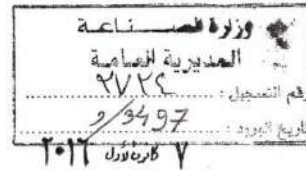 وزارة الصناعة
المديرية العامة
رقم التسجيل : ٢٧٢٤
9/3497
تاريخ الورود :
٧ كانون الأول ٢٠١٦